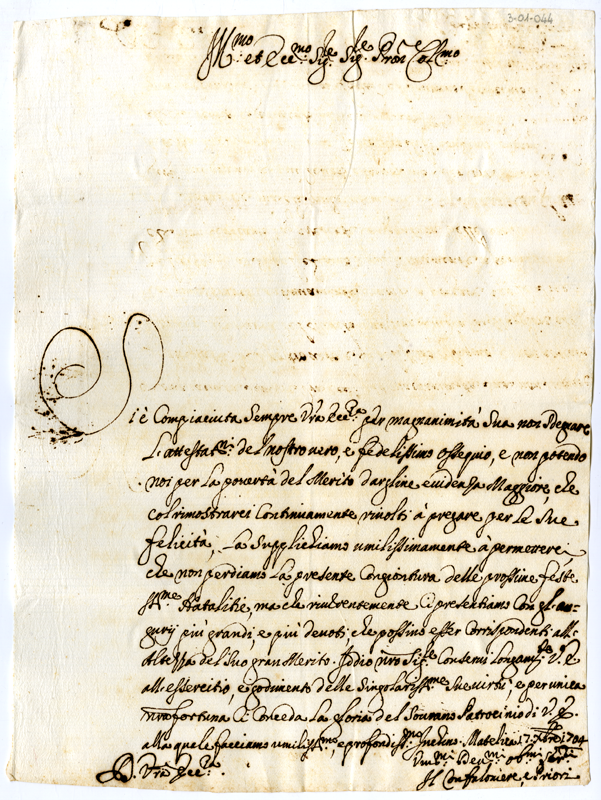 3-01-044
Ill.mo et Ecc.mo Sig.re Sig.re Pron Col.mo
Si è Compiaciuta Sempre Vra Ecc.za per magnanimità Sua non Sdegnare
L'attestat.ni del nostro vero, e fedelissimo ossequio, e non potendo
noi per la povertà del Merito dargline evidenza Maggiore, che
col rimostrarci Continuamente rivolti à pregare per le Sue
felicità; La Supplichiamo umilissimamente à permetterci,
che non perdiamo La presente Congiontura delle prossime feste
SS.me Natalitie, ma che riverentemente Ci presentiamo Con gl'au-
gurij più grandi, e più devoti, che possino esser Corrispondenti all'
Altezza del Suo gran Merito. Iddio nro Sig.re Conservi Longam.te V. E.
all'essercitio, e godimento delle Singolariss.me Sue virtù; e per unica
nra fortuna Ci Conceda La gloria del Sommo Patrocinio di V. E.
alla quale facciamo umiliss.mo, e profondiss.mo Inchino. Matelica 17 Xbre 1704
D. Vra Ecc.za
Um.mi Dev.mi Ob.mi Ser.ri
Il Confaloniere, e Priori